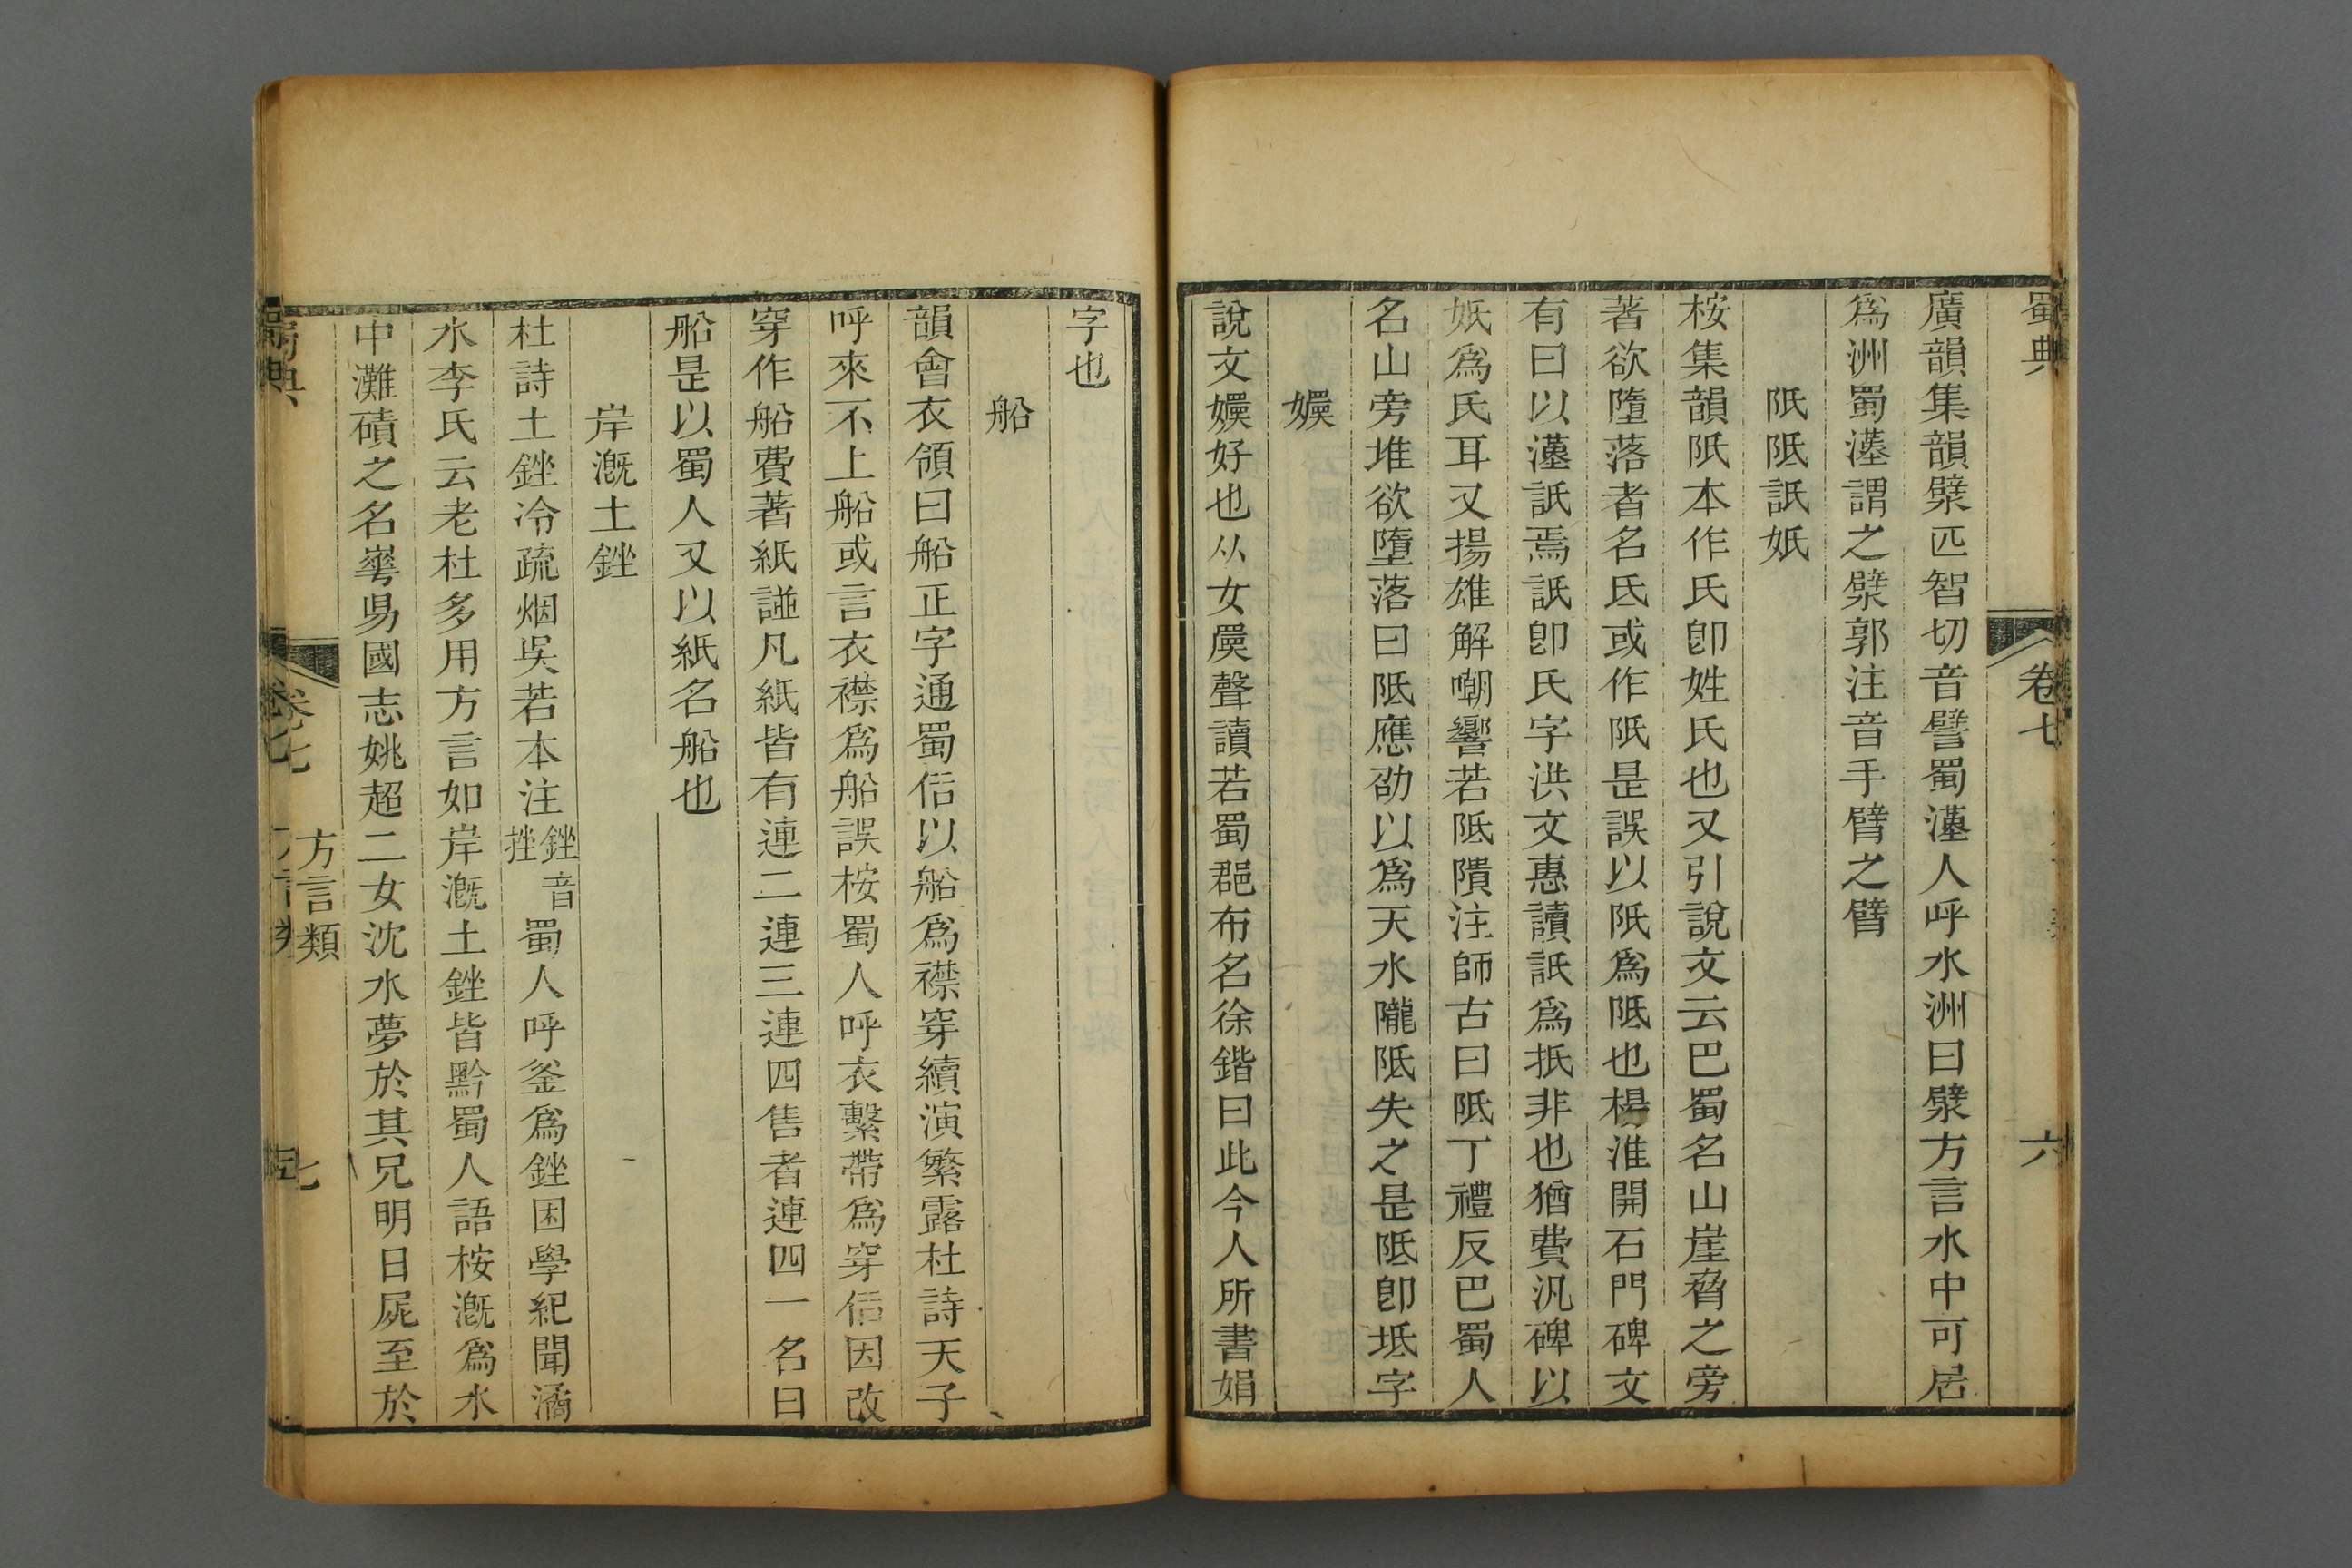 蜀典
卷七
六
廣韻集韻檗匹智切音譬蜀漢人呼水洲曰檗方言水中可居
爲洲蜀漢謂之檗郭注音手臂之臂
阺阺詆妷
桉集韻阺本作氏卽姓氏也又引說文云巴蜀名山崖脅之旁
著欲墮落者名氏或作阺是誤以阺爲阺也楊淮開石門碑文
有曰以漢詆焉詆卽氏字洪文惠讀詆爲抵非也猶費汎碑以
妷爲氏耳又揚雄解嘲響若阺隤注師古曰阺丁禮反巴蜀人
名山旁堆欲墮落曰阺應劭以爲天水隴阺失之是阺卽坻字
嬽
說文嬽好也从女𡚤聲讀若蜀郡布名徐鍇曰此今人所書娟
字也
船
韻會衣領曰船正字通蜀俗以船爲襟穿續演繁露杜詩天子
呼來不上船或言衣襟爲船誤桉蜀人呼衣繫帶爲穿俗因改
穿作船費著紙譜凡紙皆有連二連三連四售者連四一名曰
船是以蜀人又以紙名船也
岸溉土銼
杜詩土銼冷疏烟吳若本注銼音挫蜀人呼釜爲銼困學紀聞潏
水李氏云老杜多用方言如岸溉土銼皆黔蜀人語桉溉爲水
中灘磧之名華昜國志姚超二女沈水夢於其兄明日屍至於
蜀典
卷七
方言類
七